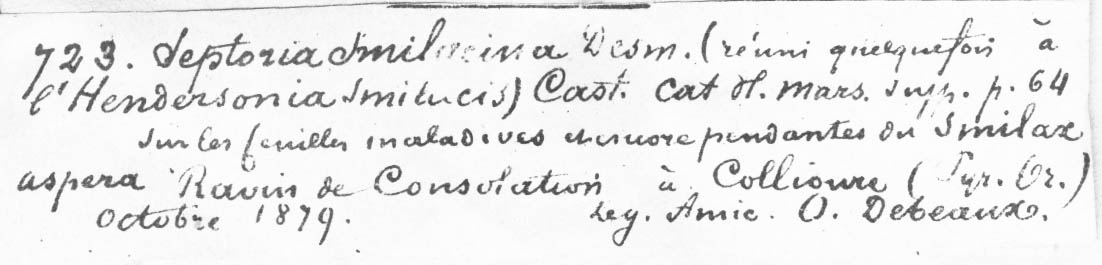 723. Septoria Smilacina Desm. (réuni quelquefois à
l'Hendersonia Smilacis) Cast. Cat pl. mars. Supp. p. 64
Sur les feuilles maladives et encore pendantes du Smilax
aspera Ravin de Consolation à Collioure (Pyr. Or.)
Octobre 1879. Leg. Amic. O. Debeaux.